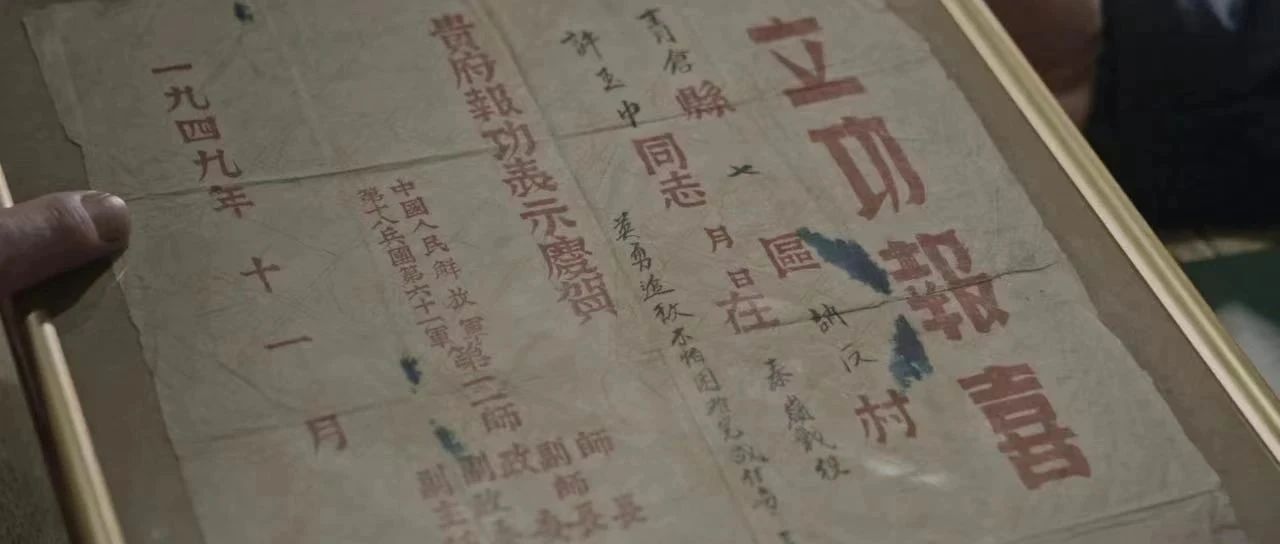 立功報喜
縣七區村
許玉中同志月日在秦嶺戰役
英勇追敌不怕困难完成任务
貴府報功表示慶賀
中國人民解放軍
第十八兵團第六十一軍
第二師
師長
副師長
政委
副政
副主
一九四九年十一月